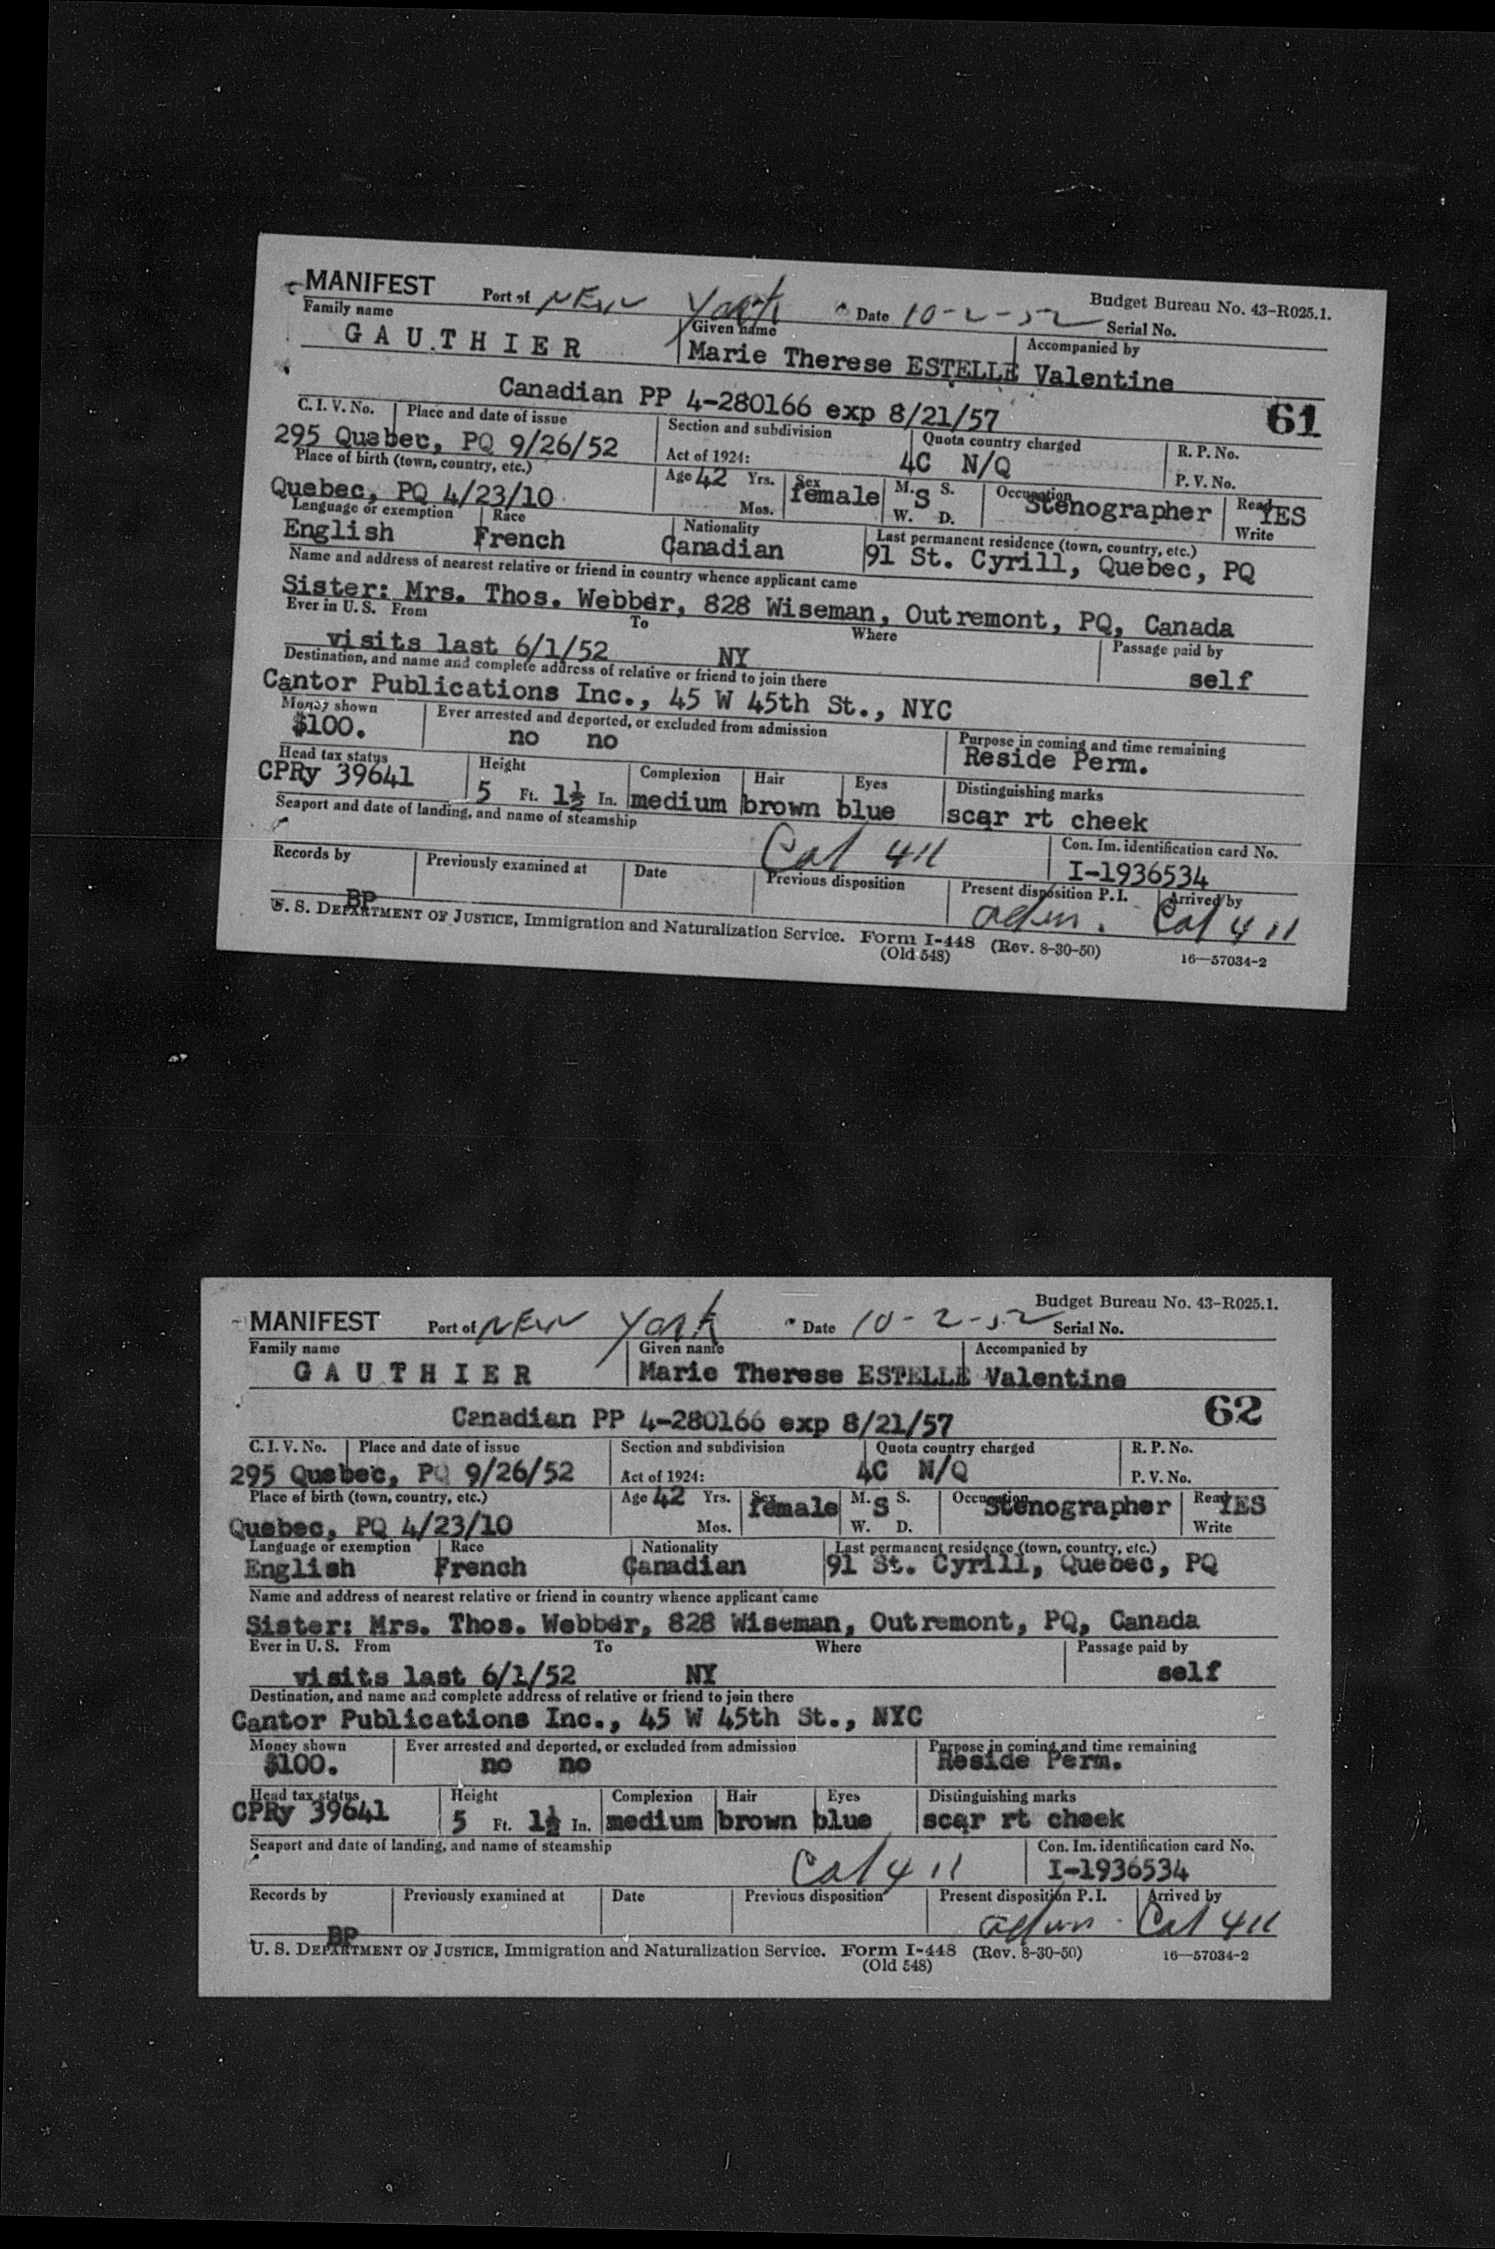 MANIFEST Port of NEW York Date 10-2-52 Budget Bureau No. 43-R025.1.
Serial No.
Family name Given name Accompanied by
GAUTHIER Marie Therese ESTELLE Valentine
Canadian PP 4-280166 exp 8/21/57 61
C. I. V. No. Place and date of issue Section and subdivision Quota country charged R. P. No.
295 Quebec, PQ 9/26/52 Act of 1924: 4C N/Q P. V. No.
Place of birth (town, country, etc.) Age 42 Yrs. Mos. Sex female M. S S. W. D. Occupation Stenographer Read YES Write
Quebec, PQ 4/23/10
Language or exemption Race Nationality Last permanent residence (town, country, etc.)
English French Canadian 91 St. Cyrill, Quebec, PQ
Name and address of nearest relative or friend in country whence applicant came
Sister: Mrs. Thos. Webber, 828 Wiseman, Outremont, PQ, Canada
Ever in U. S. From To Where Passage paid by
visits last 6/1/52 NY self
Destination, and name and complete address of relative or friend to join there
Cantor Publications Inc., 45 W 45th St., NYC
Money shown Ever arrested and deported, or excluded from admission Purpose in coming and time remaining
$100. no no Reside Perm.
Head tax status Height Complexion Hair Eyes Distinguishing marks
CPRy 39641 5 Ft. 1½ In. medium brown blue scar rt cheek
Seaport and date of landing, and name of steamship Con. Im. identification card No.
Cal 411 I-1936534
Records by Previously examined at Date Previous disposition Present disposition P. I. Arrived by
BP adm. Cal 411
U. S. DEPARTMENT OF JUSTICE, Immigration and Naturalization Service. Form I-448 (Rev. 8-30-50) 16—57034-2
(Old 548)
MANIFEST Port of NEW York Date 10-2-52 Budget Bureau No. 43-R025.1.
Serial No.
Family name Given name Accompanied by
GAUTHIER Marie Therese ESTELLE Valentine
Canadian PP 4-280166 exp 8/21/57 62
C. I. V. No. Place and date of issue Section and subdivision Quota country charged R. P. No.
295 Quebec, PQ 9/26/52 Act of 1924: 4C N/Q P. V. No.
Place of birth (town, country, etc.) Age 42 Yrs. Mos. Sex female M. S S. W. D. Occupation Stenographer Read YES Write
Quebec, PQ 4/23/10
Language or exemption Race Nationality Last permanent residence (town, country, etc.)
English French Canadian 91 St. Cyrill, Quebec, PQ
Name and address of nearest relative or friend in country whence applicant came
Sister: Mrs. Thos. Webber, 828 Wiseman, Outremont, PQ, Canada
Ever in U. S. From To Where Passage paid by
visits last 6/1/52 NY self
Destination, and name and complete address of relative or friend to join there
Cantor Publications Inc., 45 W 45th St., NYC
Money shown Ever arrested and deported, or excluded from admission Purpose in coming and time remaining
$100. no no Reside Perm.
Head tax status Height Complexion Hair Eyes Distinguishing marks
CPRy 39641 5 Ft. 1½ In. medium brown blue scar rt cheek
Seaport and date of landing, and name of steamship Con. Im. identification card No.
Cal 411 I-1936534
Records by Previously examined at Date Previous disposition Present disposition P. I. Arrived by
BP adm. Cal 411
U. S. DEPARTMENT OF JUSTICE, Immigration and Naturalization Service. Form I-448 (Rev. 8-30-50) 16—57034-2
(Old 548)